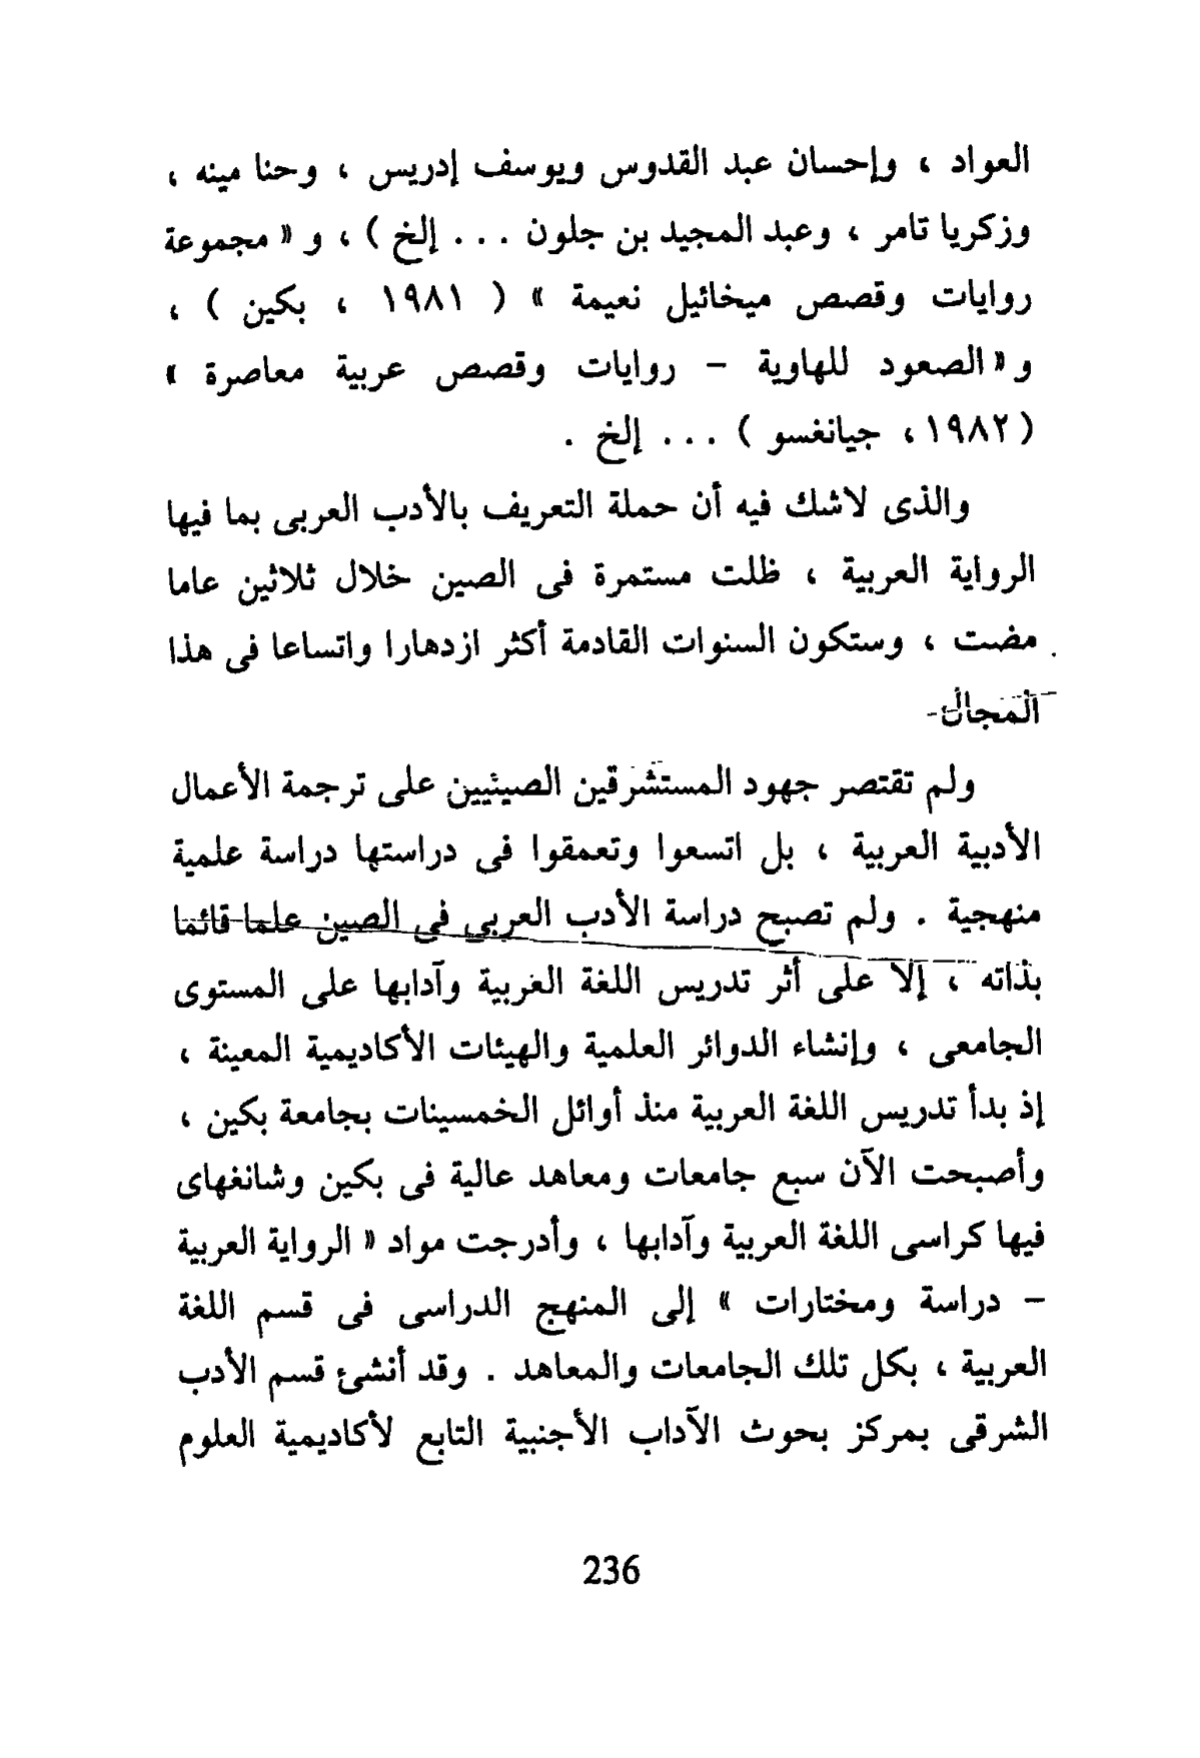 العواد ، وإحسان عبد القدوس ويوسف إدريس ، وحنا مينه ،
وزكريا تامر ، وعبد المجيد بن جلون . . . إلخ ) ، و « مجموعة
روايات وقصص ميخائيل نعيمة » ( ١٩٨١ ، بكين ) ،
و « الصعود للهاوية – روايات وقصص عربية معاصرة »
( ١٩٨٢ ، جيانغسو ) . . . إلخ .
والذى لاشك فيه أن حملة التعريف بالأدب العربى بما فيها
الرواية العربية ، ظلت مستمرة فى الصين خلال ثلاثين عاما
مضت ، وستكون السنوات القادمة أكثر ازدهارا واتساعا فى هذا
المجال
ولم تقتصر جهود المستشرقين الصينيين على ترجمة الأعمال
الأدبية العربية ، بل اتسعوا وتعمقوا فى دراستها دراسة علمية
منهجية . ولم تصبح دراسة الأدب العربى فى الصين علما قائما
بذاته ، إلا على أثر تدريس اللغة العربية وآدابها على المستوى
الجامعى ، وإنشاء الدوائر العلمية والهيئات الأكاديمية المعينة ،
إذ بدأ تدريس اللغة العربية منذ أوائل الخمسينات بجامعة بكين ،
وأصبحت الآن سبع جامعات ومعاهد عالية فى بكين وشانغهاى
فيها كراسى اللغة العربية وآدابها ، وأدرجت مواد « الرواية العربية
– دراسة ومختارات » إلى المنهج الدراسى فى قسم اللغة
العربية ، بكل تلك الجامعات والمعاهد . وقد أنشئ قسم الأدب
الشرقى بمركز بحوث الآداب الأجنبية التابع لأكاديمية العلوم
236